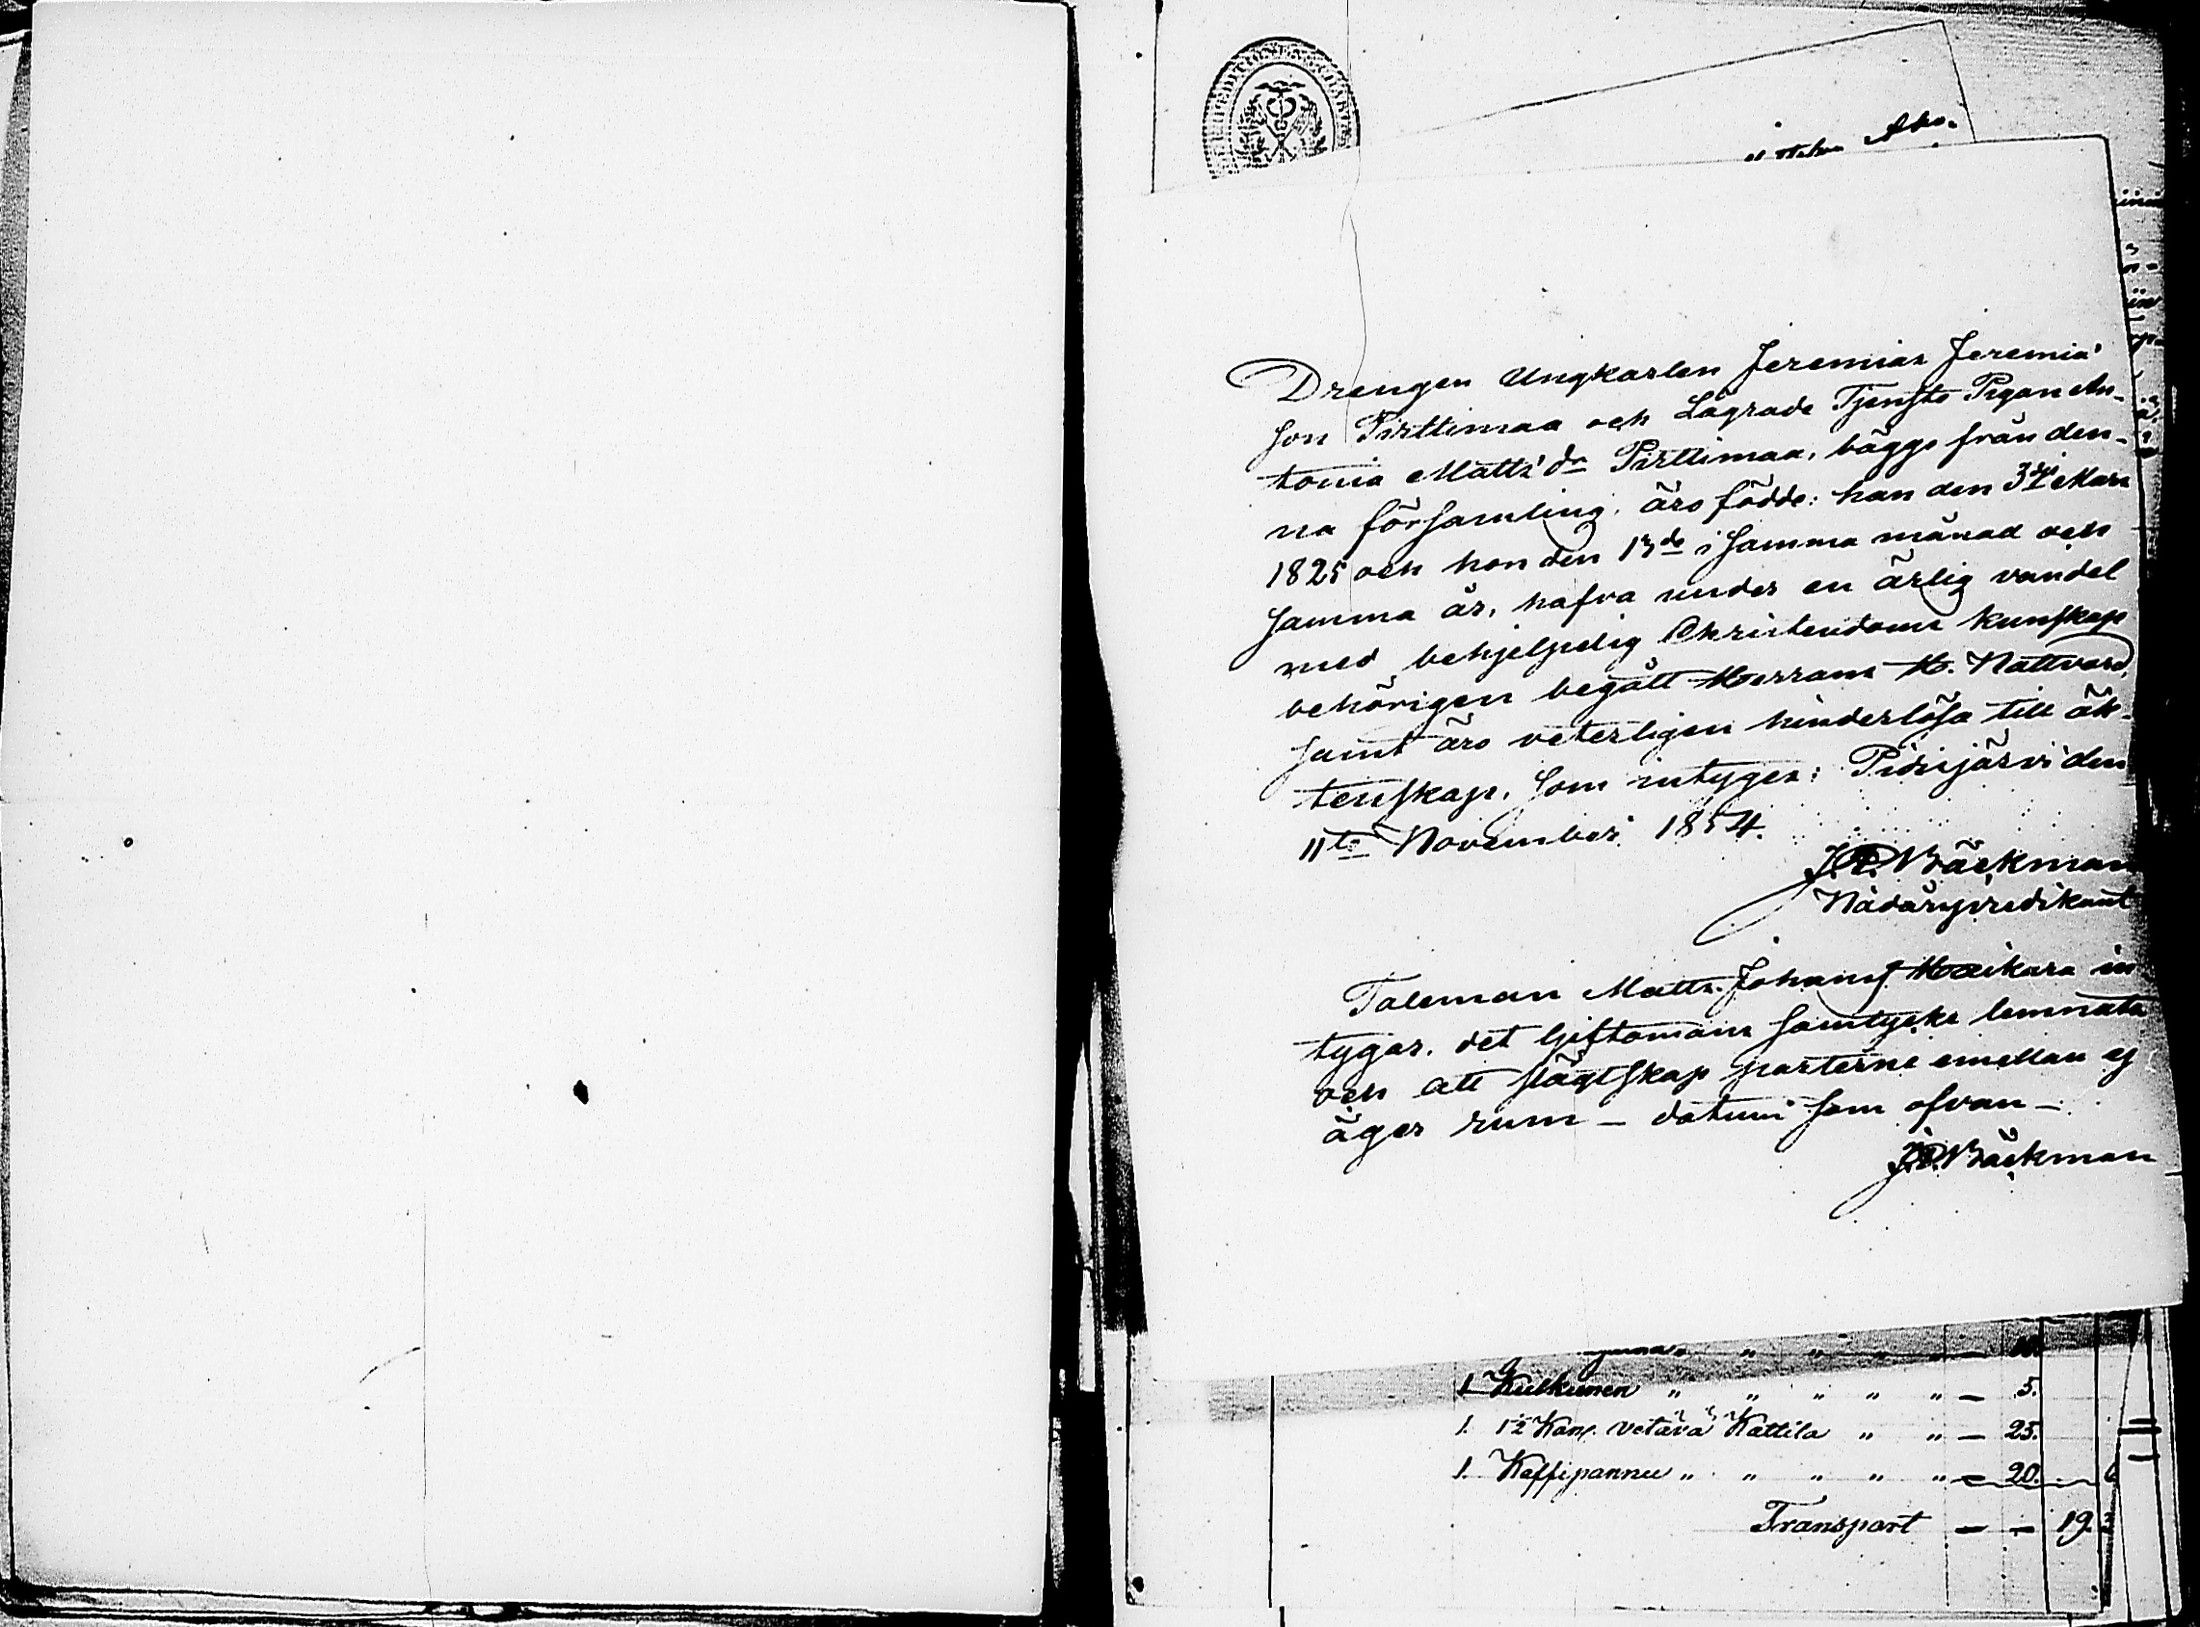 Drengen Ungkarlen Jeremias Jeremias
son Pirttimaa och Lägrade Tjensto Pigan An-
tonia Matts dr Pirttimaa, bägge från den-
na församling, äro födde: han den 3dje Mars
1825 och hon den 13de i samma månad och
samma år, hafva under en ärlig vandel
med behjelpelig Christendoms kunskap
behörigen begått Herrans H. Nattvard,
samt äro veterligen hinderlösa till äk-
tenskap, som intygas: Pidisjärvi den
11te November 1854.
J. P. Bäckman
Nådårspredikant
Taleman Matts Johans. Haikara in
tygar, det Giftomans samtycke lemnats
och att slägtskap parterne emellan ej
äger rum — datum som ofvan —
J. P. Bäckman
1 Kulkunen " " " " " — 5.
1. 1½ Kan. vetävä Kattila " " — 25.
1. Kaffipannu " " " " " — 20.
Transport — — 19